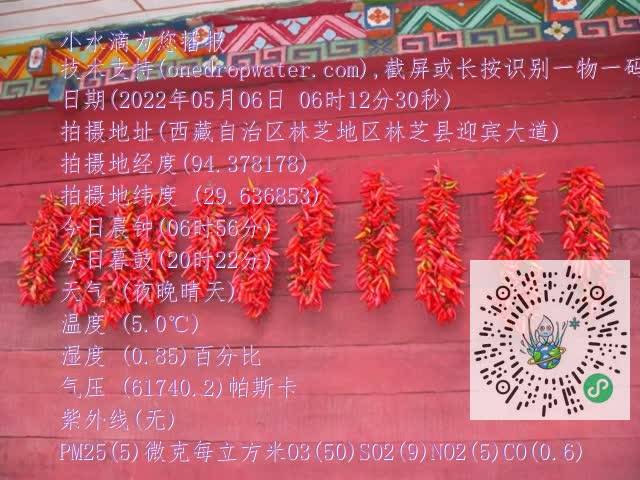 小水滴为您播报
技术支持(onedropwater.com),截屏或长按识别一物一码
日期(2022年05月06日 06时12分30秒)
拍摄地址(西藏自治区林芝地区林芝县迎宾大道)
拍摄地经度(94.378178)
拍摄地纬度 (29.636853)
今日晨钟(06时56分)
今日暮鼓(20时22分)
天气 (夜晚晴天)
温度 (5.0℃)
湿度 (0.85)百分比
气压 (61740.2)帕斯卡
紫外线(无)
PM25(5)微克每立方米O3(50)SO2(9)NO2(5)CO(0.6)